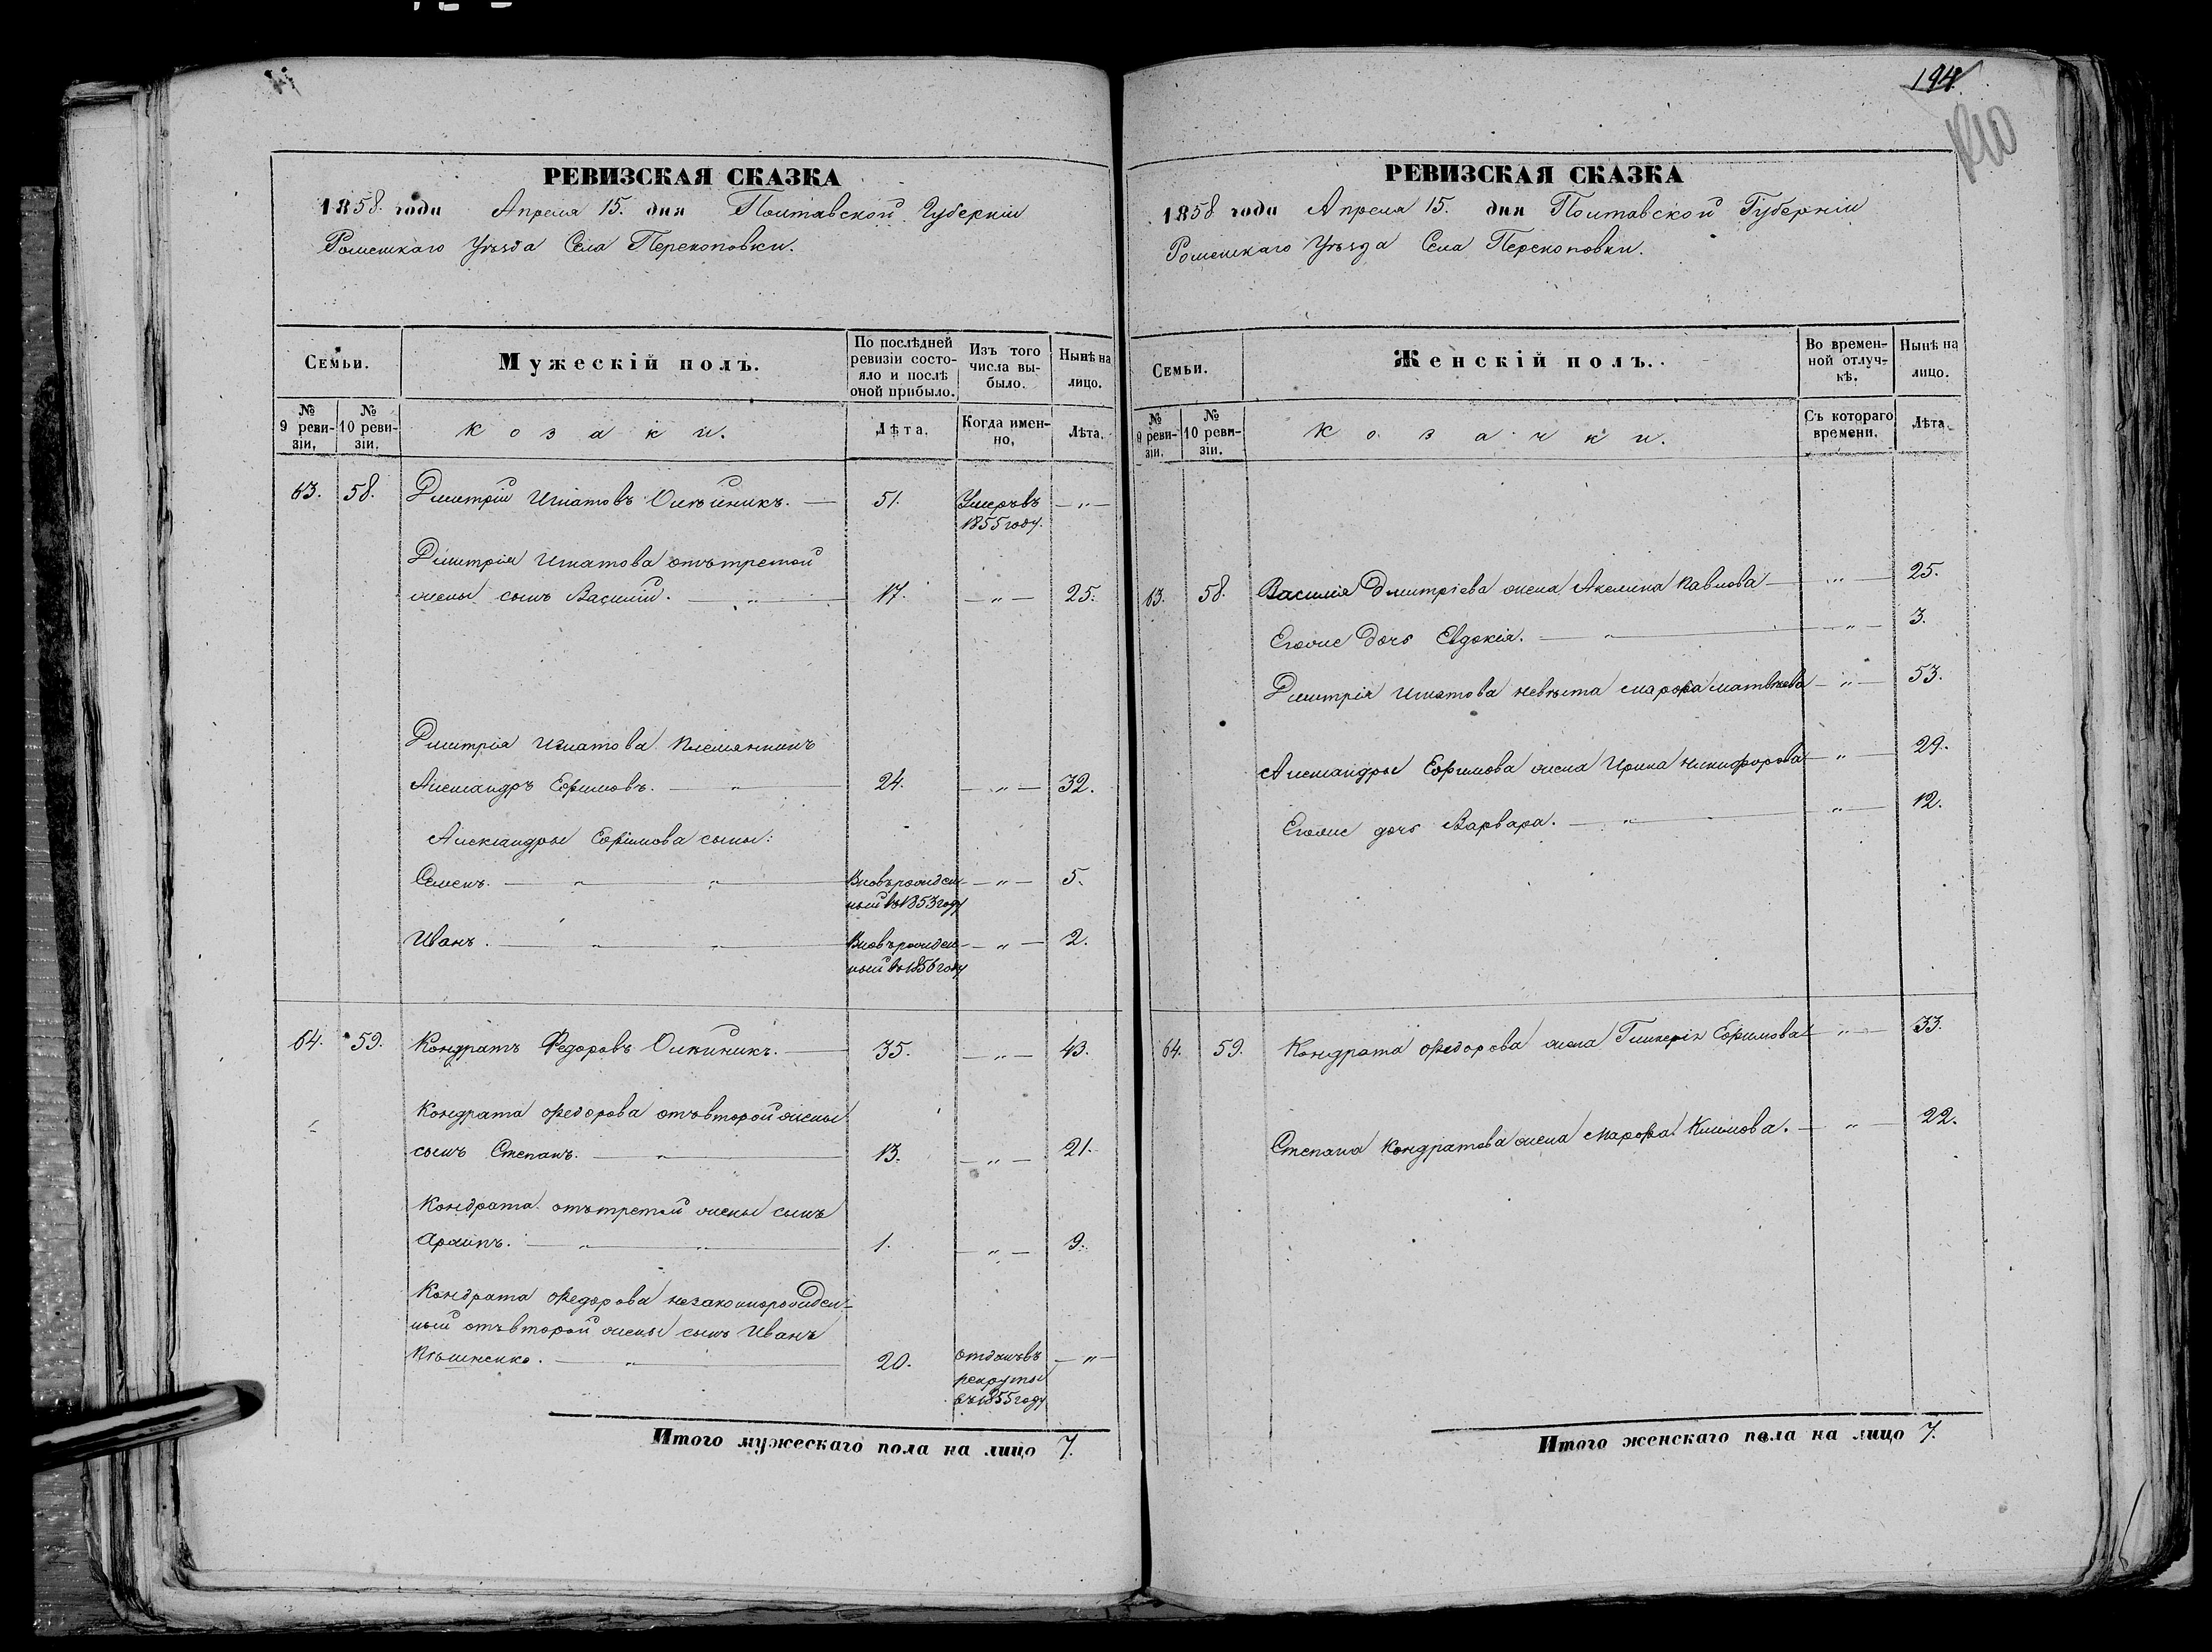 РЕВИЗСКАЯ СКАЗКА
1858 года Апреля 15. дня Полтавской Губерніи
Роменскаго Уѣзда Села Перекоповки.
Семьи.
Мужескій полъ.
По послѣдней ревизіи состояло и послѣ оной прибыло.
Изъ того числа выбыло.
Нынѣ на лицо.
№ 9 ревизіи.
№ 10 ревизіи.
Козаки.
Лѣта.
Когда именно.
Лѣта.
63. 58. Дмитрій Игнатовъ Олѣйникъ. — 51. Умеръ въ — „ —
1855 году.
Дмитрія Игнатова отъ третей
жены сынъ Василій. — „ — 17. — „ — 25.
Дмитрія Игнатова племянникъ
Александръ Ефимовъ. — „ — 24. — „ — 32.
Александры Ефимова сыны:
Семенъ. — „ — „ — Вновь рожден- — „ — 5.
ный въ 1853 году
Иванъ. — „ — „ — Вновь рожден- — „ — 2.
ный въ 1856 году
64. 59. Кондратъ Федоровъ Олѣйникъ. — 35. — „ — 43.
Кондрата Федорова отъ второй жены
сынъ Степанъ. — „ — 13. — „ — 21.
Кондрата отъ третей жены сынъ
Архипъ. — „ — „ — 1. — „ — 9.
Кондрата Федорова незаконорожден-
ный отъ второй жены сынъ Иванъ
20. отданъ въ — „ —
рекруты
въ 1855 году
Итого мужескаго пола на лицо 7.
194.
РЕВИЗСКАЯ СКАЗКА
1858 года Апреля 15. дня Полтавской Губерніи
Роменскаго Уѣзда Села Перекоповки.
Семьи.
Женскій полъ.
Во временной отлучкѣ.
Нынѣ на лицо.
№ 9 ревизіи.
№ 10 ревизіи.
Козачки.
Съ котораго времени.
Лѣта.
63. 58. Василія Дмитріева жена Акелина Павлова — „ — 25.
Егоже дочь Евдокія. — „ — „ — 3.
Дмитрія Игнатова невѣста Марфа Матвѣева — „ — 53.
Александры Ефимова жена Ирина Никифорова — „ — 29.
Егоже дочь Варвара. — „ — „ — 12.
64. 59. Кондрата Федорова жена Гликерія Ефимова — „ — 33.
Степана Кондратова жена Марфа Климова. — „ — 22.
Итого женскаго пола на лицо 7.